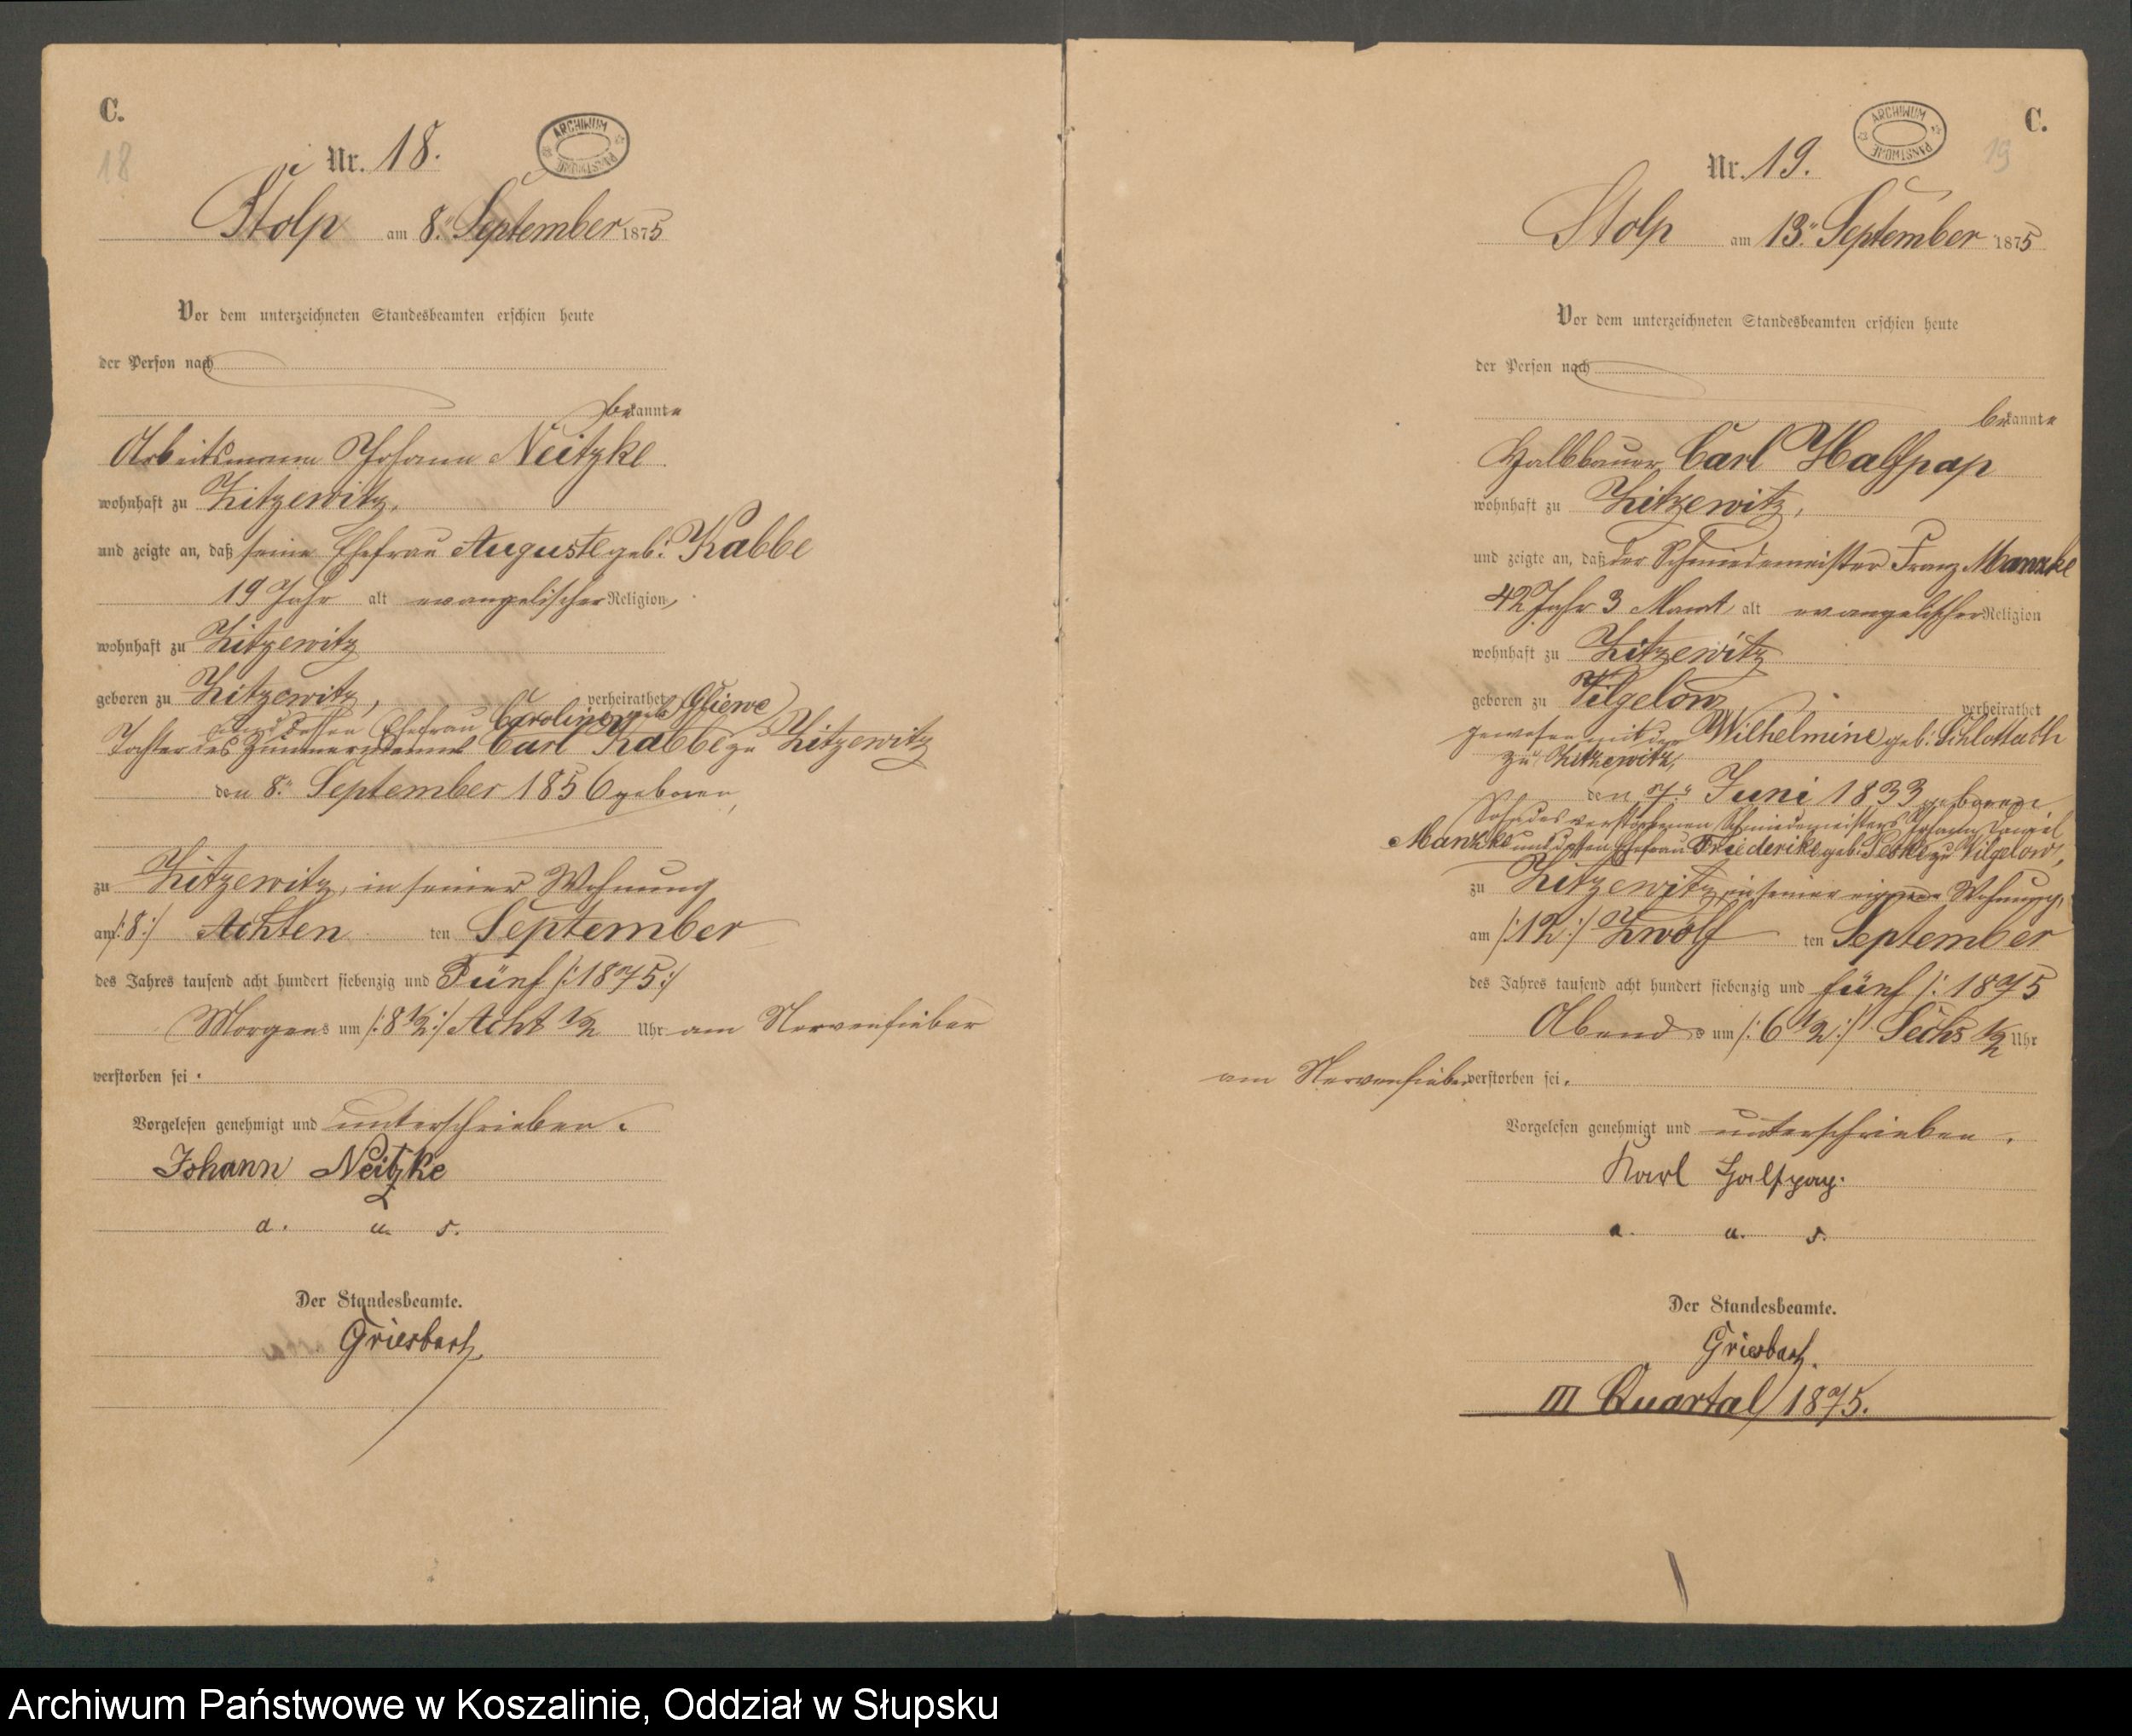 C.
18
Nr. 18.
ARCHIWUM PAŃSTWOWE
Stolp am 8. September 1875
Vor dem unterzeichneten Standesbeamten erschien heute
der Person nach
bekannte
Arbeitsmann Johann Neitzke
wohnhaft zu Zitzewitz,
und zeigte an, daß seine Ehefrau Auguste geb. Kabbe
19 Jahr alt evangelischer Religion,
wohnhaft zu Zitzewitz
geboren zu Zitzewitz, verheirathet
und dessen Ehefrau Caroline geb. Gliewe
Tochter des Zimmermanns Carl Kabbe zu Zitzewitz
den 8. September 1856 geboren,
zu Zitzewitz, in seiner Wohnung
am /:8:/ Achten ten September
des Jahres tausend acht hundert siebenzig und Fünf /:1875:/
Morgens um /:8 1/2:/ Acht 1/2 Uhr am Nervenfieber
verstorben sei.
Vorgelesen genehmigt und unterschrieben.
Johann Neitzke
a. u. s.
Der Standesbeamte.
Griesbach.
C.
19
Nr. 19.
ARCHIWUM PAŃSTWOWE
Stolp am 13. September 1875
Vor dem unterzeichneten Standesbeamten erschien heute
der Person nach
bekannte
Halbbauer Carl Halfpap
wohnhaft zu Zitzewitz,
und zeigte an, daß der Schmiedemeister Franz Manzke
42 Jahr 3 Monat alt evangelischer Religion
wohnhaft zu Zitzewitz
geboren zu Vilgelow, verheirathet
gewesen mit der Wilhelmine geb. Schlottath
zu Zitzewitz,
den 7. Juni 1833 geboren
Sohn des verstorbenen Schmiedemeisters Johann Daniel
Manzke und dessen Ehefrau Friederike geb. zu Vilgelow,
zu Zitzewitz, in seiner eigenen Wohnung,
am /:12:/ Zwölf ten September
des Jahres tausend acht hundert siebenzig und fünf /: 1875
Abends um /:6 1/2:/ Sechs 1/2 Uhr
am Nervenfieber verstorben sei.
Vorgelesen genehmigt und unterschrieben.
Karl Halfpap.
a. u. s.
Der Standesbeamte.
Griesbach.
III Quartal 1875.
Archiwum Państwowe w Koszalinie, Oddział w Słupsku